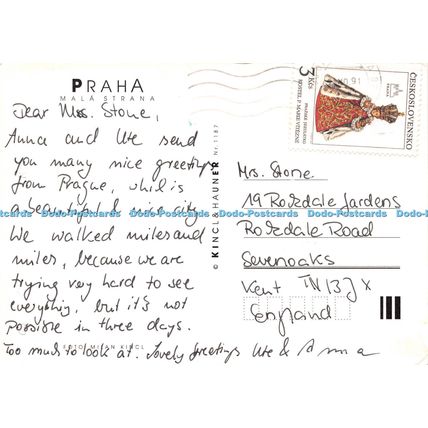 PRAHA
MALÁ STRANA
Dear Mrs. Stone,
Anna and Ute send
you many nice greetings
from Prague, which is
a beautiful & nice city.
We walked miles and
miles, because we are
trying very hard to see
everything, but it's not
possible in three days.
Too much to look at. Lovely greetings Ute & Anna
FOTO MILAN KINCL
© KINCL & HAUNER Nr. 1187
91
3 Kčs
ČESKOSLOVENSKO
PRAŽSKÉ JEZULÁTKO
KOSTEL P. MARIE VÍTĚZNÉ
Mrs. Stone
19 Rosedale Gardens
Rosedale Road
Sevenoaks
Kent
England
Dodo-Postcards Dodo-Postcards Dodo-Postcards Dodo-Postcards Dodo-Postcards